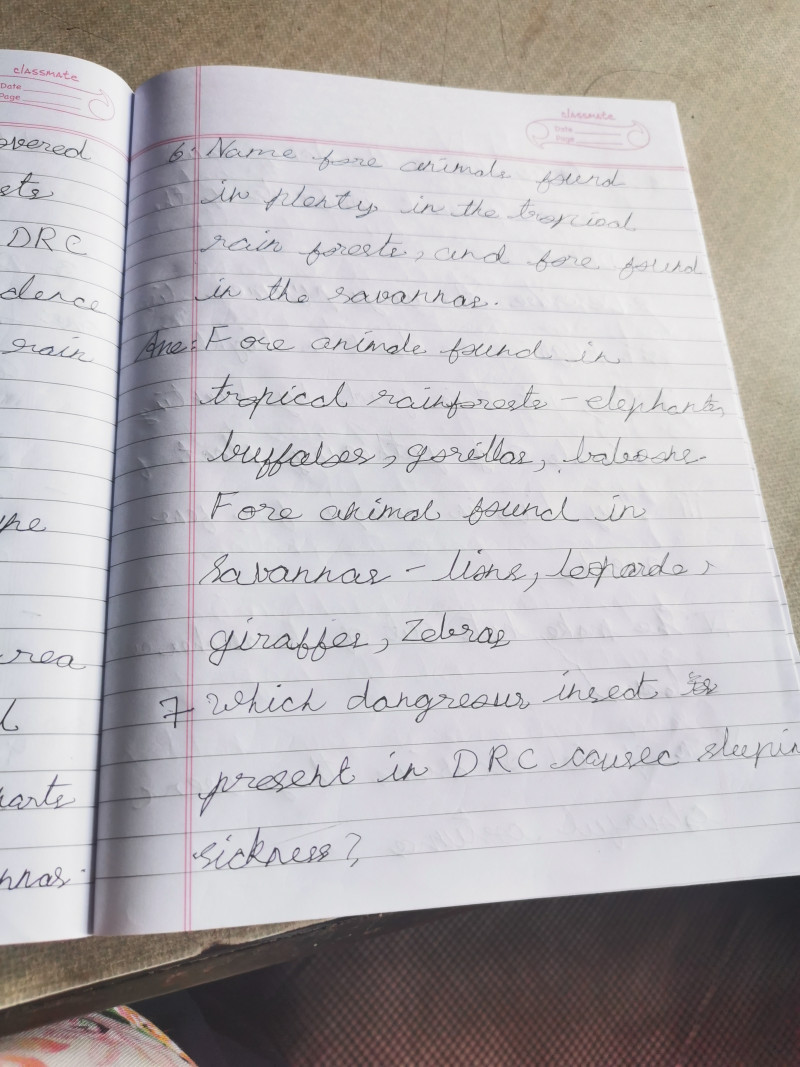 classmate
Date
Page
overed
ets
DRC
dence
rain
rea
l
arts
nnas.
classmate
Date
Page
6. Name fore animals found
in plenty in the tropical
rain forests, and fore found
in the savannas.
Ans: Fore animals found in
tropical rainforests - elephants,
buffaloes, gorillas, baboons.
Fore animal found in
Savannas - lions, leopards,
giraffes, Zebras
7 which dangreour insect is
present in DRC causec sleepin
sickness?